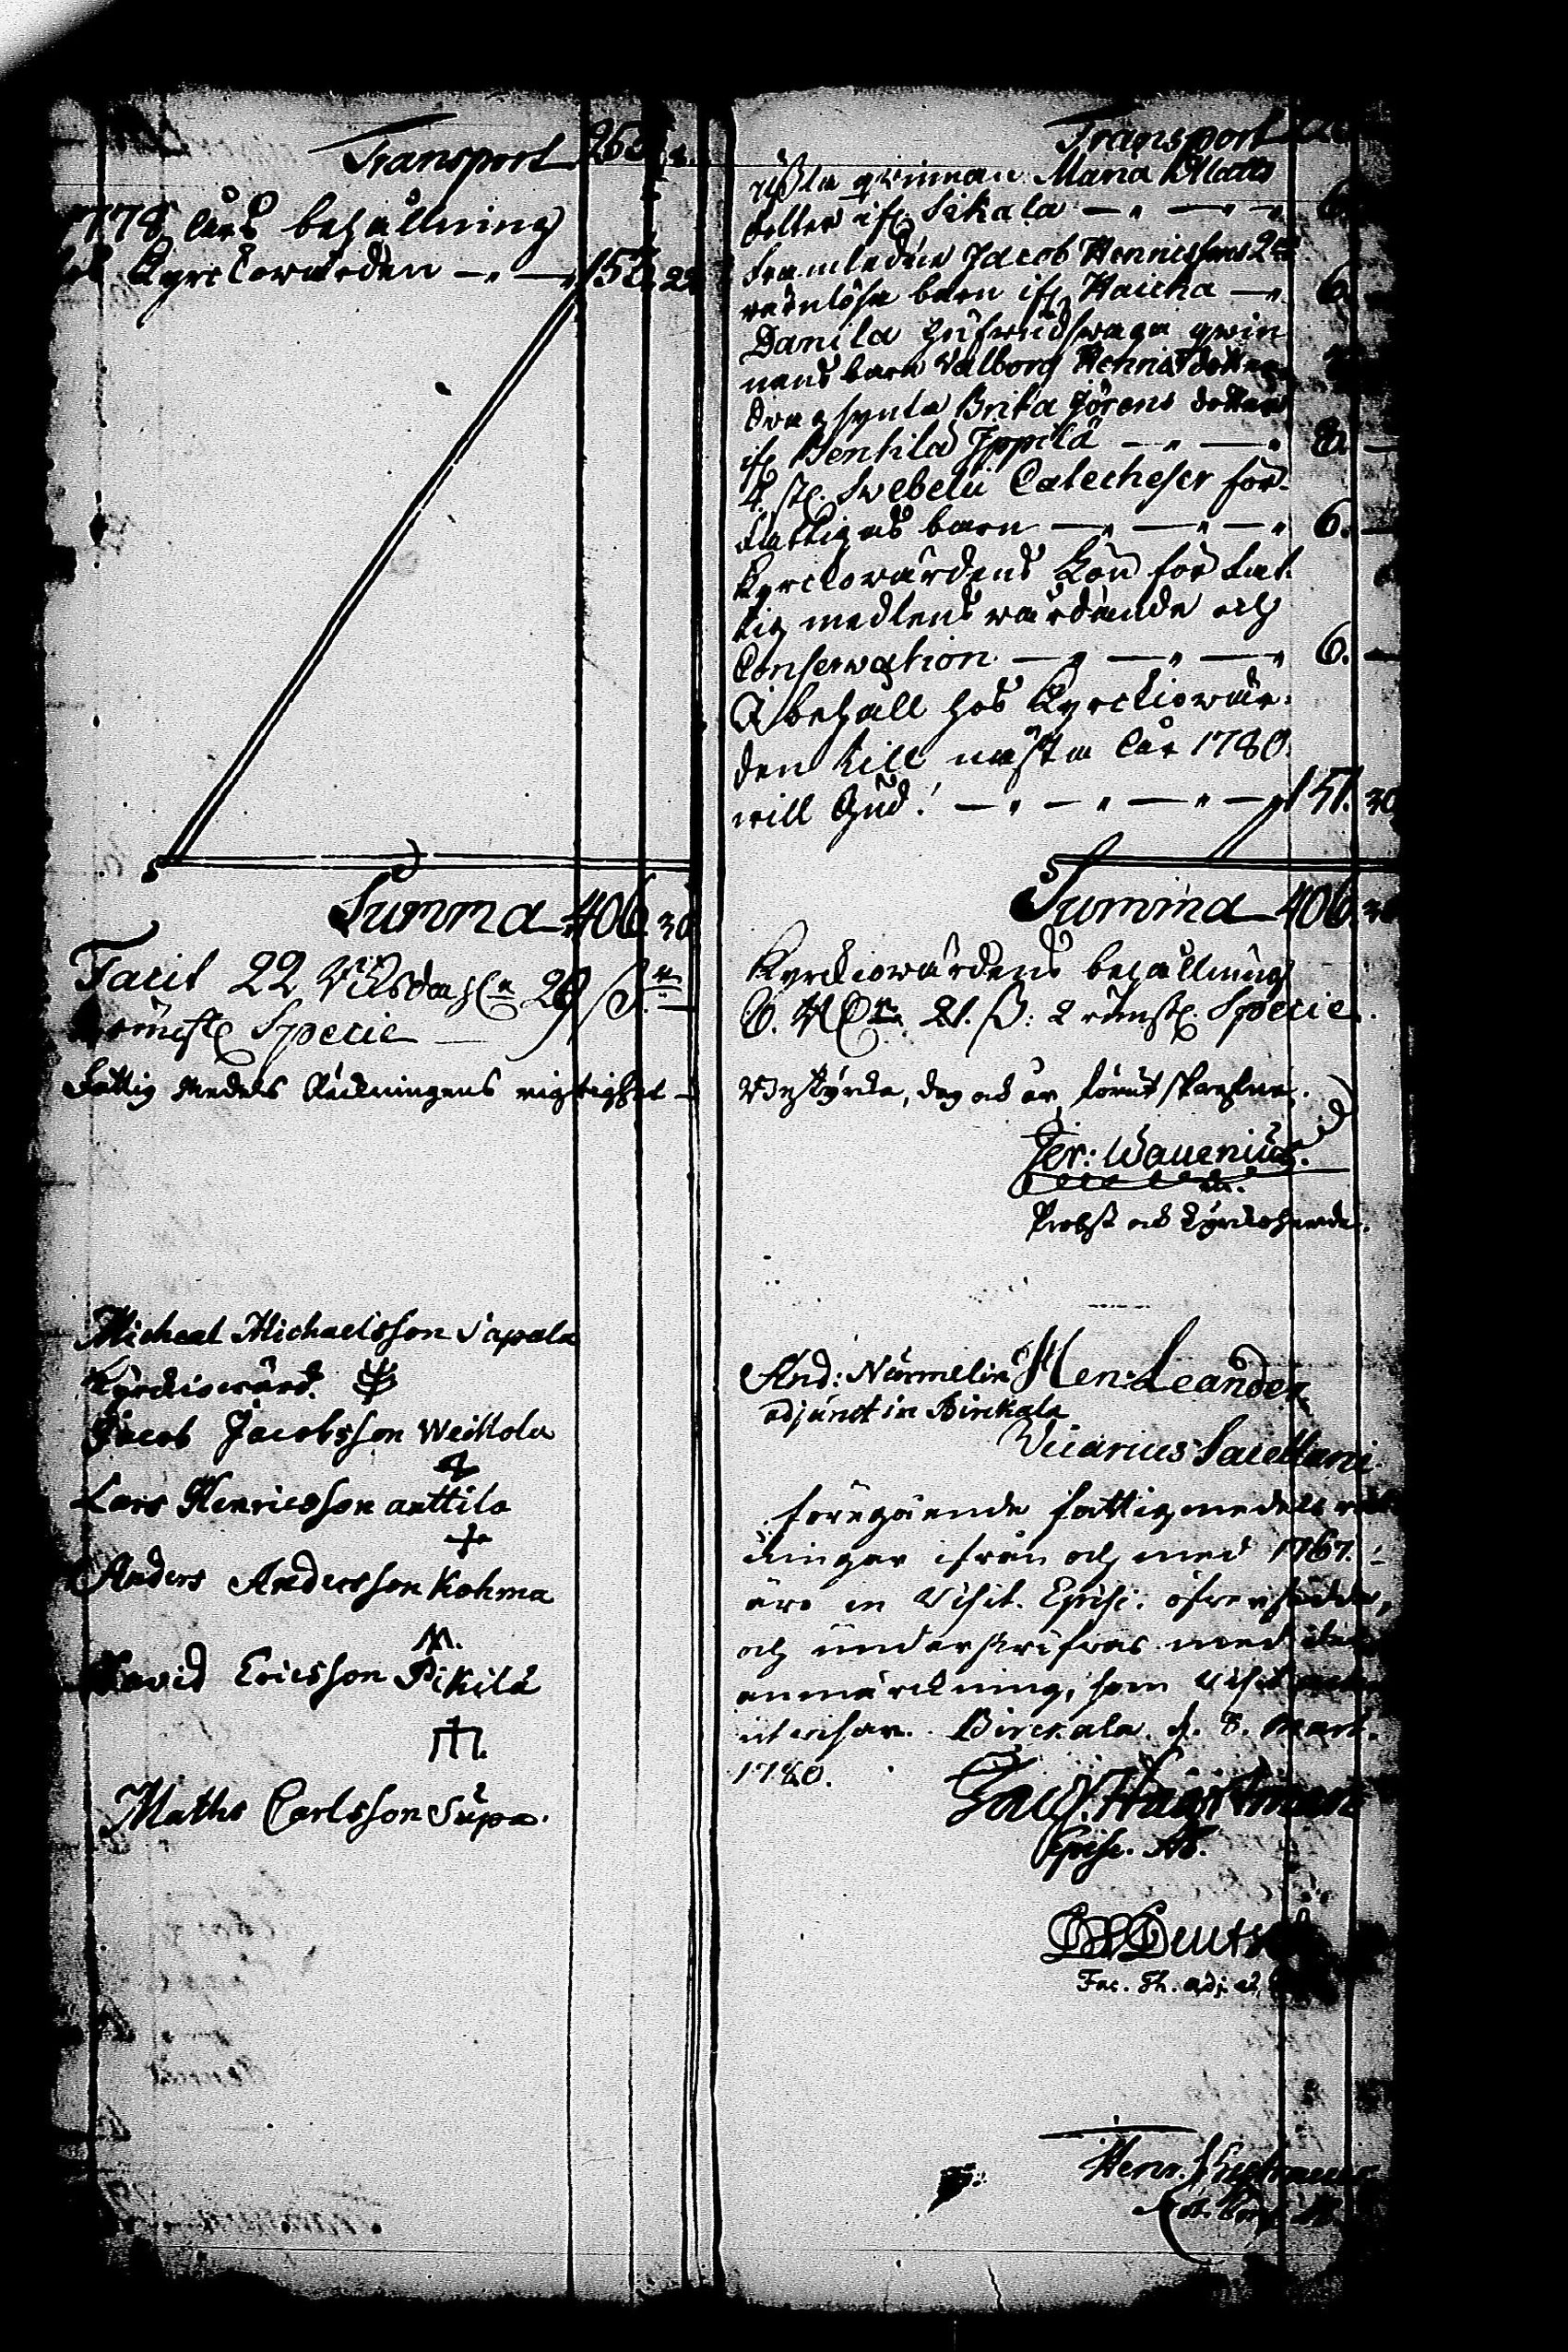 Transport 253
1778 Års behållning
Kyrckowärden — 153. 22
Summa 406. 30
Facit 22 Riksdahlr 29 ß
Specie
Fattig Medels Räckningens rigtighet
Michael Michaelsson Sapala
Kyrckiowärd.
Jacob Jacobsson Weickola
Lars Henricsson anttila
Anders Andersson Kohma
David Ericsson Pikilä
Maths Carlsson Supa.
Transport
qwinnan Maria Matts
dotter ifr. Sikala — 6.
framledne Jacob Hennicssons 2
wärnlösa barn ifr. Haicka — 6.
Danila husfrudswaga qwin
nans barn Valborg Henricsdotter
Brita Jörens dotter
ifr. Bentilä Ippilä — 8.
4. st. Swebelii Catecheser för
fattigas barn — 6.
Kyrckowärdens Lön för fat
tig medlens wårdande och
Conservation — 6.
I behåll hos Kyrckiowär
den till nästa År 1780.
will Gud! — 151. 30
Summa 406. 30
Kyrckiowärdens behållning
6. RDr. 21. ß: 2 runst. Specie.
Betyga, dag och år, förut skrefne.
Jer: Wauenius.
Probst och Kyrckoherde.
And: Nürmelin Hen: Leander
adjunct in Birckala
Vicarius Sacellani
föregående fattigmedels räk
ningar ifrån och med 1767.
äro in Visit. Episc. öfversedde,
och underskrifwas med den
anmärckning, som Visit. acten
utwisar. Birckala d. 8. Mart.
1780.
Jac. Haartman
Episc. Ab.
Deutsch
Fac. Th. Adj.
Henr.